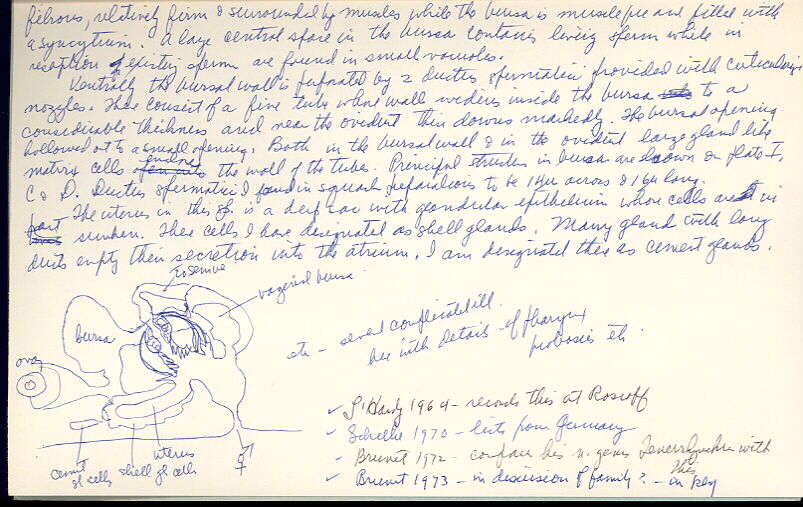 fibrous, relatively firm & surrounded by muscles while the bursa is muscle free and filled with
a syncytium. A large central space in the bursa contains living sperm while in
resorption existing sperm are found in small vacuoles.
Ventrally the bursal wall is perforated by 2 ductus spermatici provided with cuticularized
nozzles. These consist of a fine tube whose wall widens inside the bursa to a
considerable thickness and near the oviduct thin downs markedly. The bursal opening
hollowed out to a small opening. Both in the bursal wall & in the oviduct large gland like
matrix cells enclose the wall of the tubes. Principal structures in bursa are shown on plate I,
C & D. Ductus spermatici I found in squash preparations to be 14µ across & 16µ long.
The uterus in this sp. is a deep sac with glandular epithelium whose cells are in
part sunken. These cells I have designated as shell glands. Many gland with long
ducts empty their secretion into the atrium. I am designated these as cement glands.
vaginal bursa
bursa
etc - several complicated ill.
here with details of pharynx
proboscis etc.
ovary
uterus
cement gl cells
shell gl cells
✓ L'Hardy 1964 - records this at Roscoff
✓ Schilke 1970 - lists from Germany
✓ Brunet 1972 - compare his n. genus with
this
✓ Brunet 1973 - in discussion of family? - in key
♂
♀